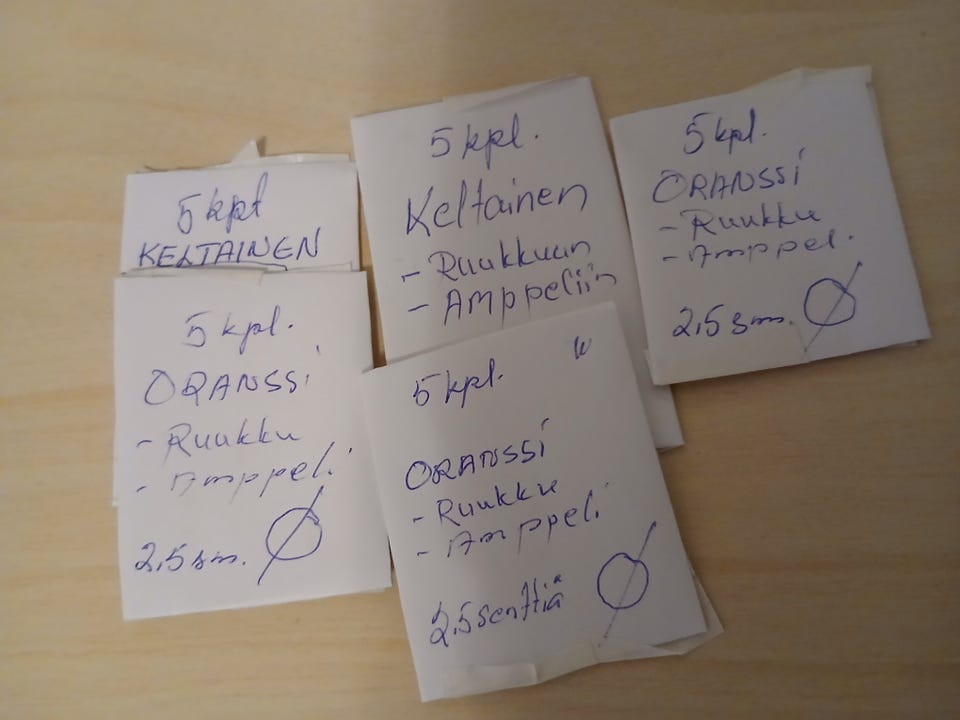 5 kpl
KELTAINEN
5 kpl.
Keltainen
- Ruukkuun
- AMPPeliin
5 kpl.
ORANSSi
- Ruukku
- Amppel.
2,5 sm. Ø
5 kpl.
ORANSSi
- Ruukku
- Amppeli
2,5 sm. Ø
5 kpl.
ORANSSi
- Ruukku
- Amppeli
2,5 senttiä Ø